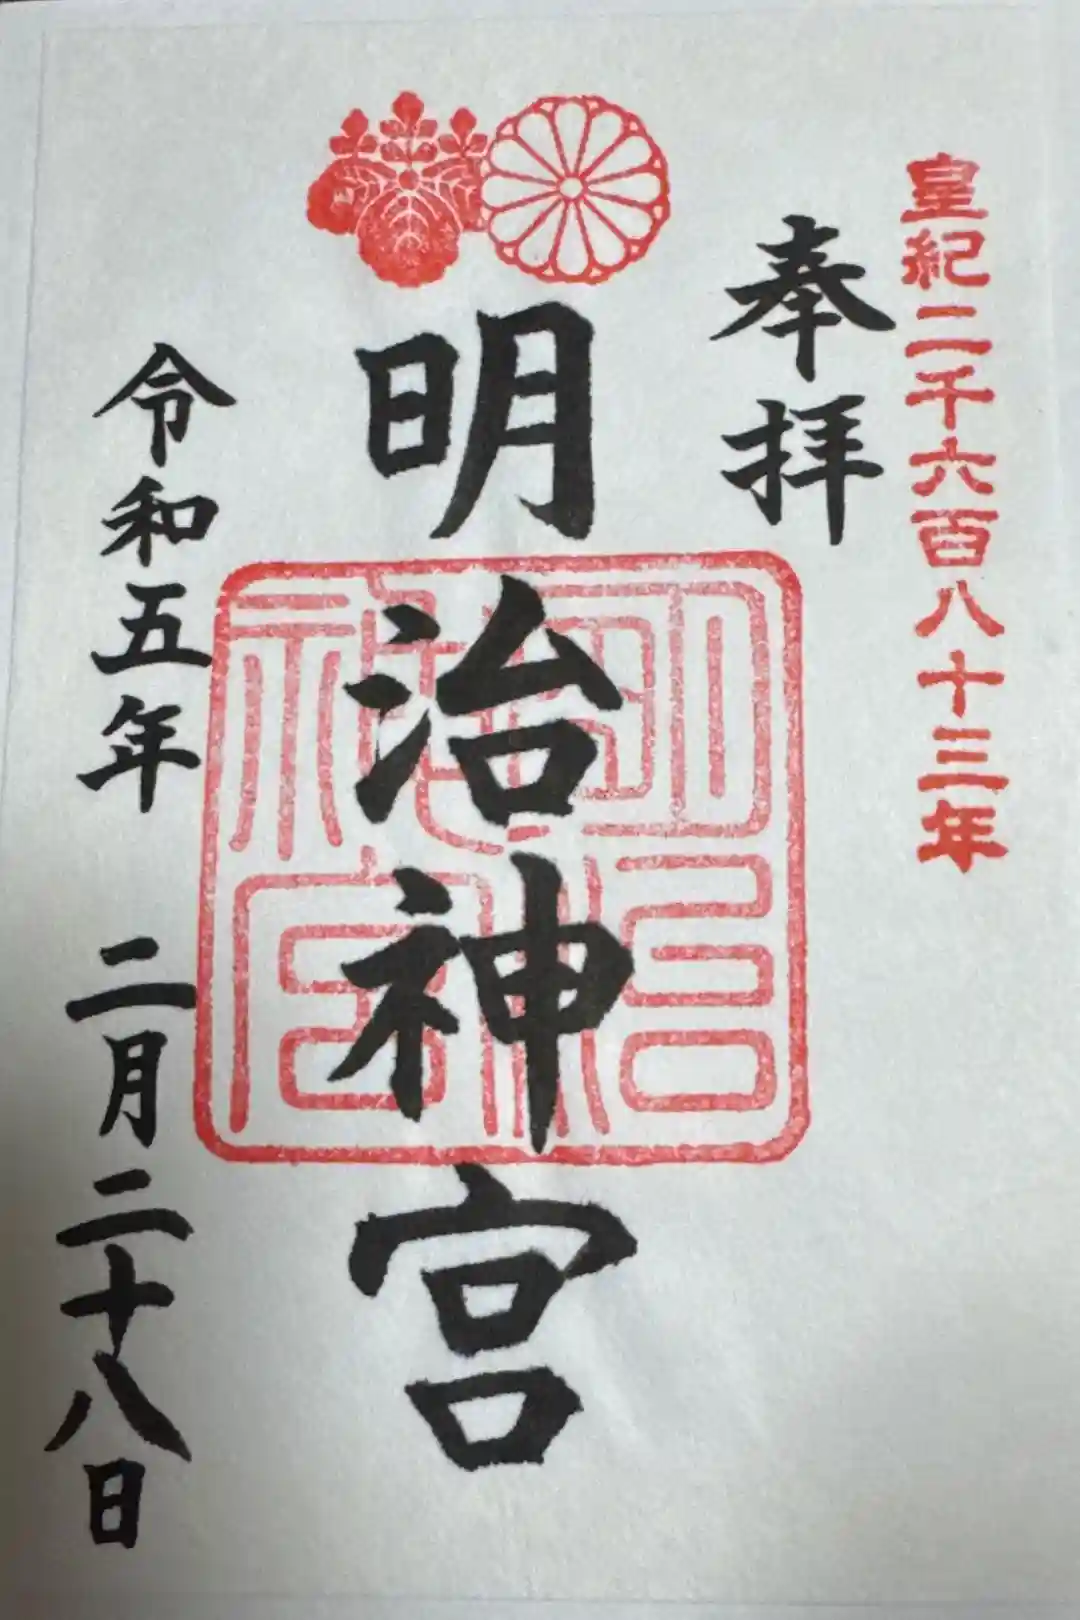 皇紀二千六百八十三年
奉拝
明治神宮
明治神宮
令和五年 二月二十八日